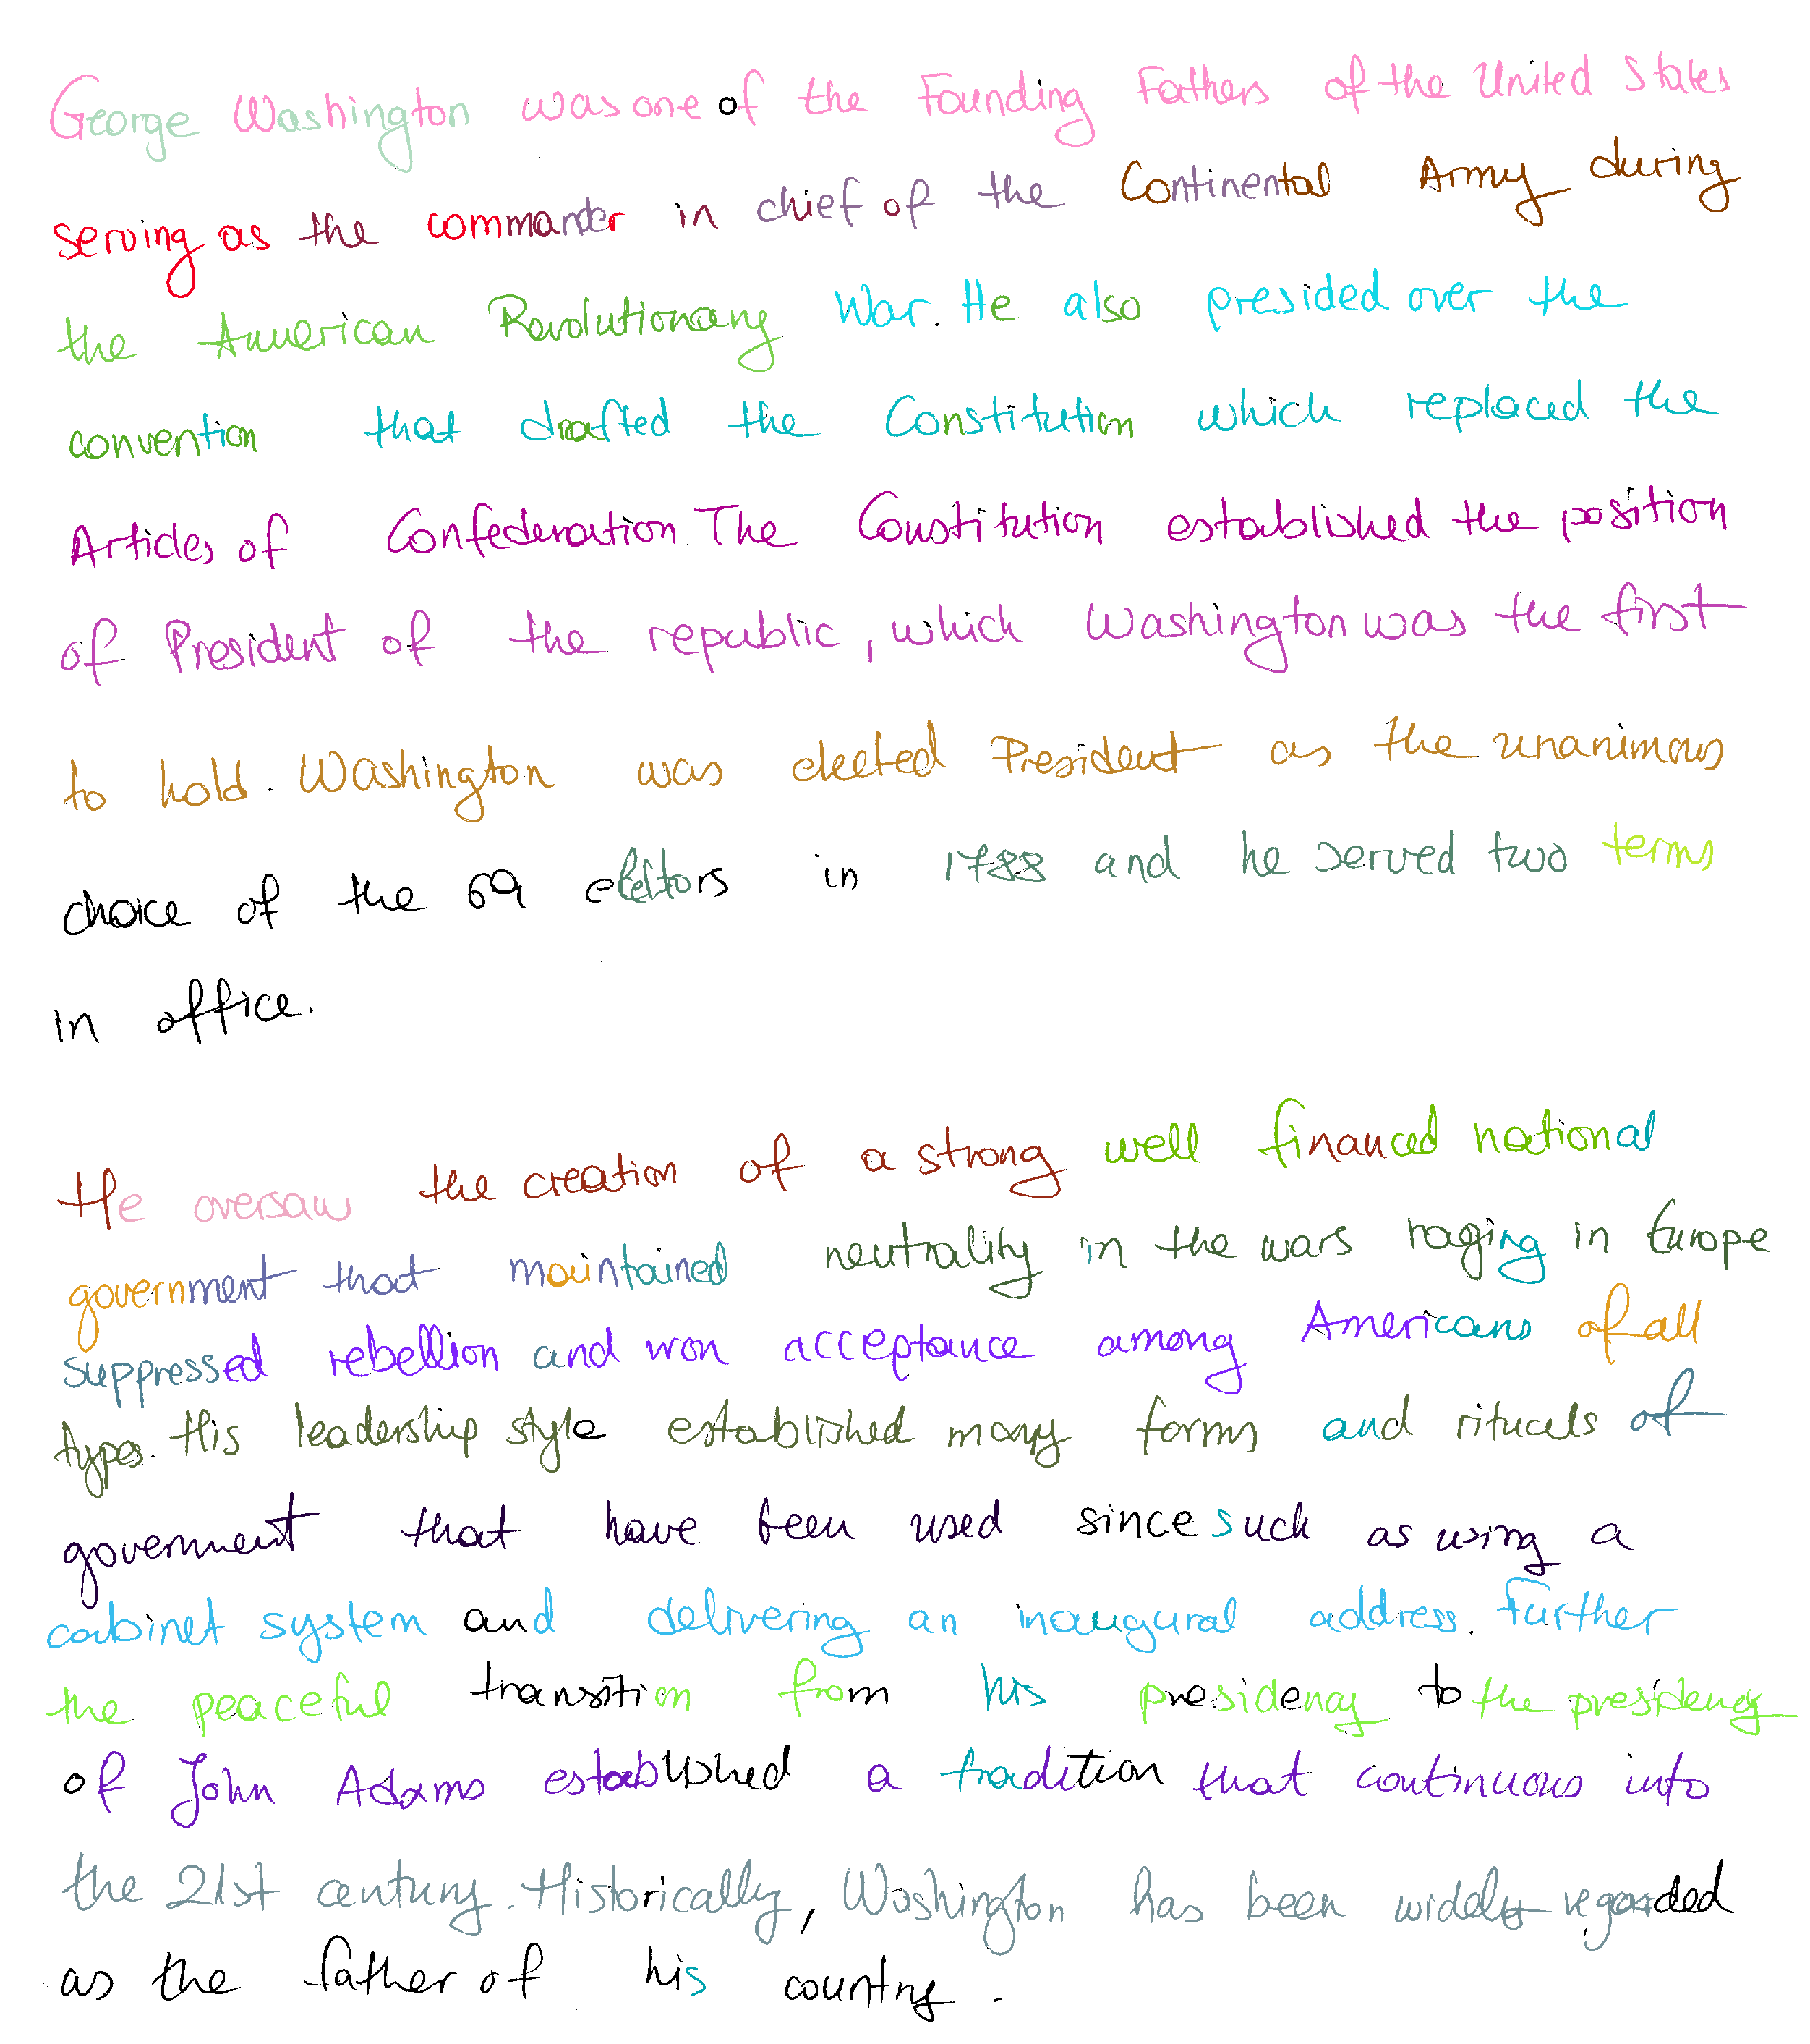 George Washington was one of the Founding Fathers of the United States
serving as the commander in chief of the Continental Army during
the American Revolutionary War. He also presided over the
convention that drafted the Constitution which replaced the
Articles of Confederation. The Constitution established the position
of President of the republic, which Washington was the first
to hold. Washington was elected President as the unanimous
choice of the 69 electors in 1788 and he served two terms
in office.
He oversaw the creation of a strong well financed national
government that maintained neutrality in the wars raging in Europe
suppressed rebellion and won acceptance among Americans of all
types. His leadership style established many forms and rituals of
government that have been used since such as using a
cabinet system and delivering an inaugural address. Further
the peaceful transition from his presidency to the presidency
of John Adams established a tradition that continuous into
the 21st century. Historically, Washington has been widely regarded
as the father of his country.